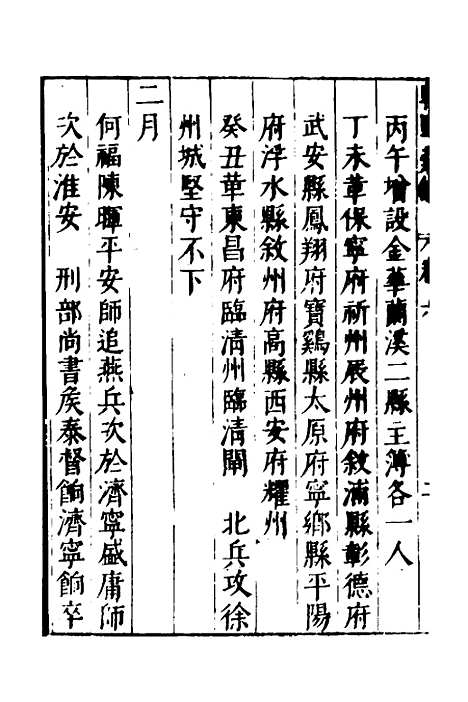 丙午增設金華蘭溪二縣主簿各一人
丁未革保寧府祈州辰州府敘浦縣彰德府
武安縣鳳翔府寶鷄縣太原府寧鄉縣平陽
府浮水縣敘州府高縣西安府耀州
癸丑革東昌府臨清州臨清閘　北兵攻徐
州城堅守不下
二月
何福陳暉平安師追燕兵次於濟寧盛庸師
次於淮安　刑部尚書矦泰督餉濟寧餉卒